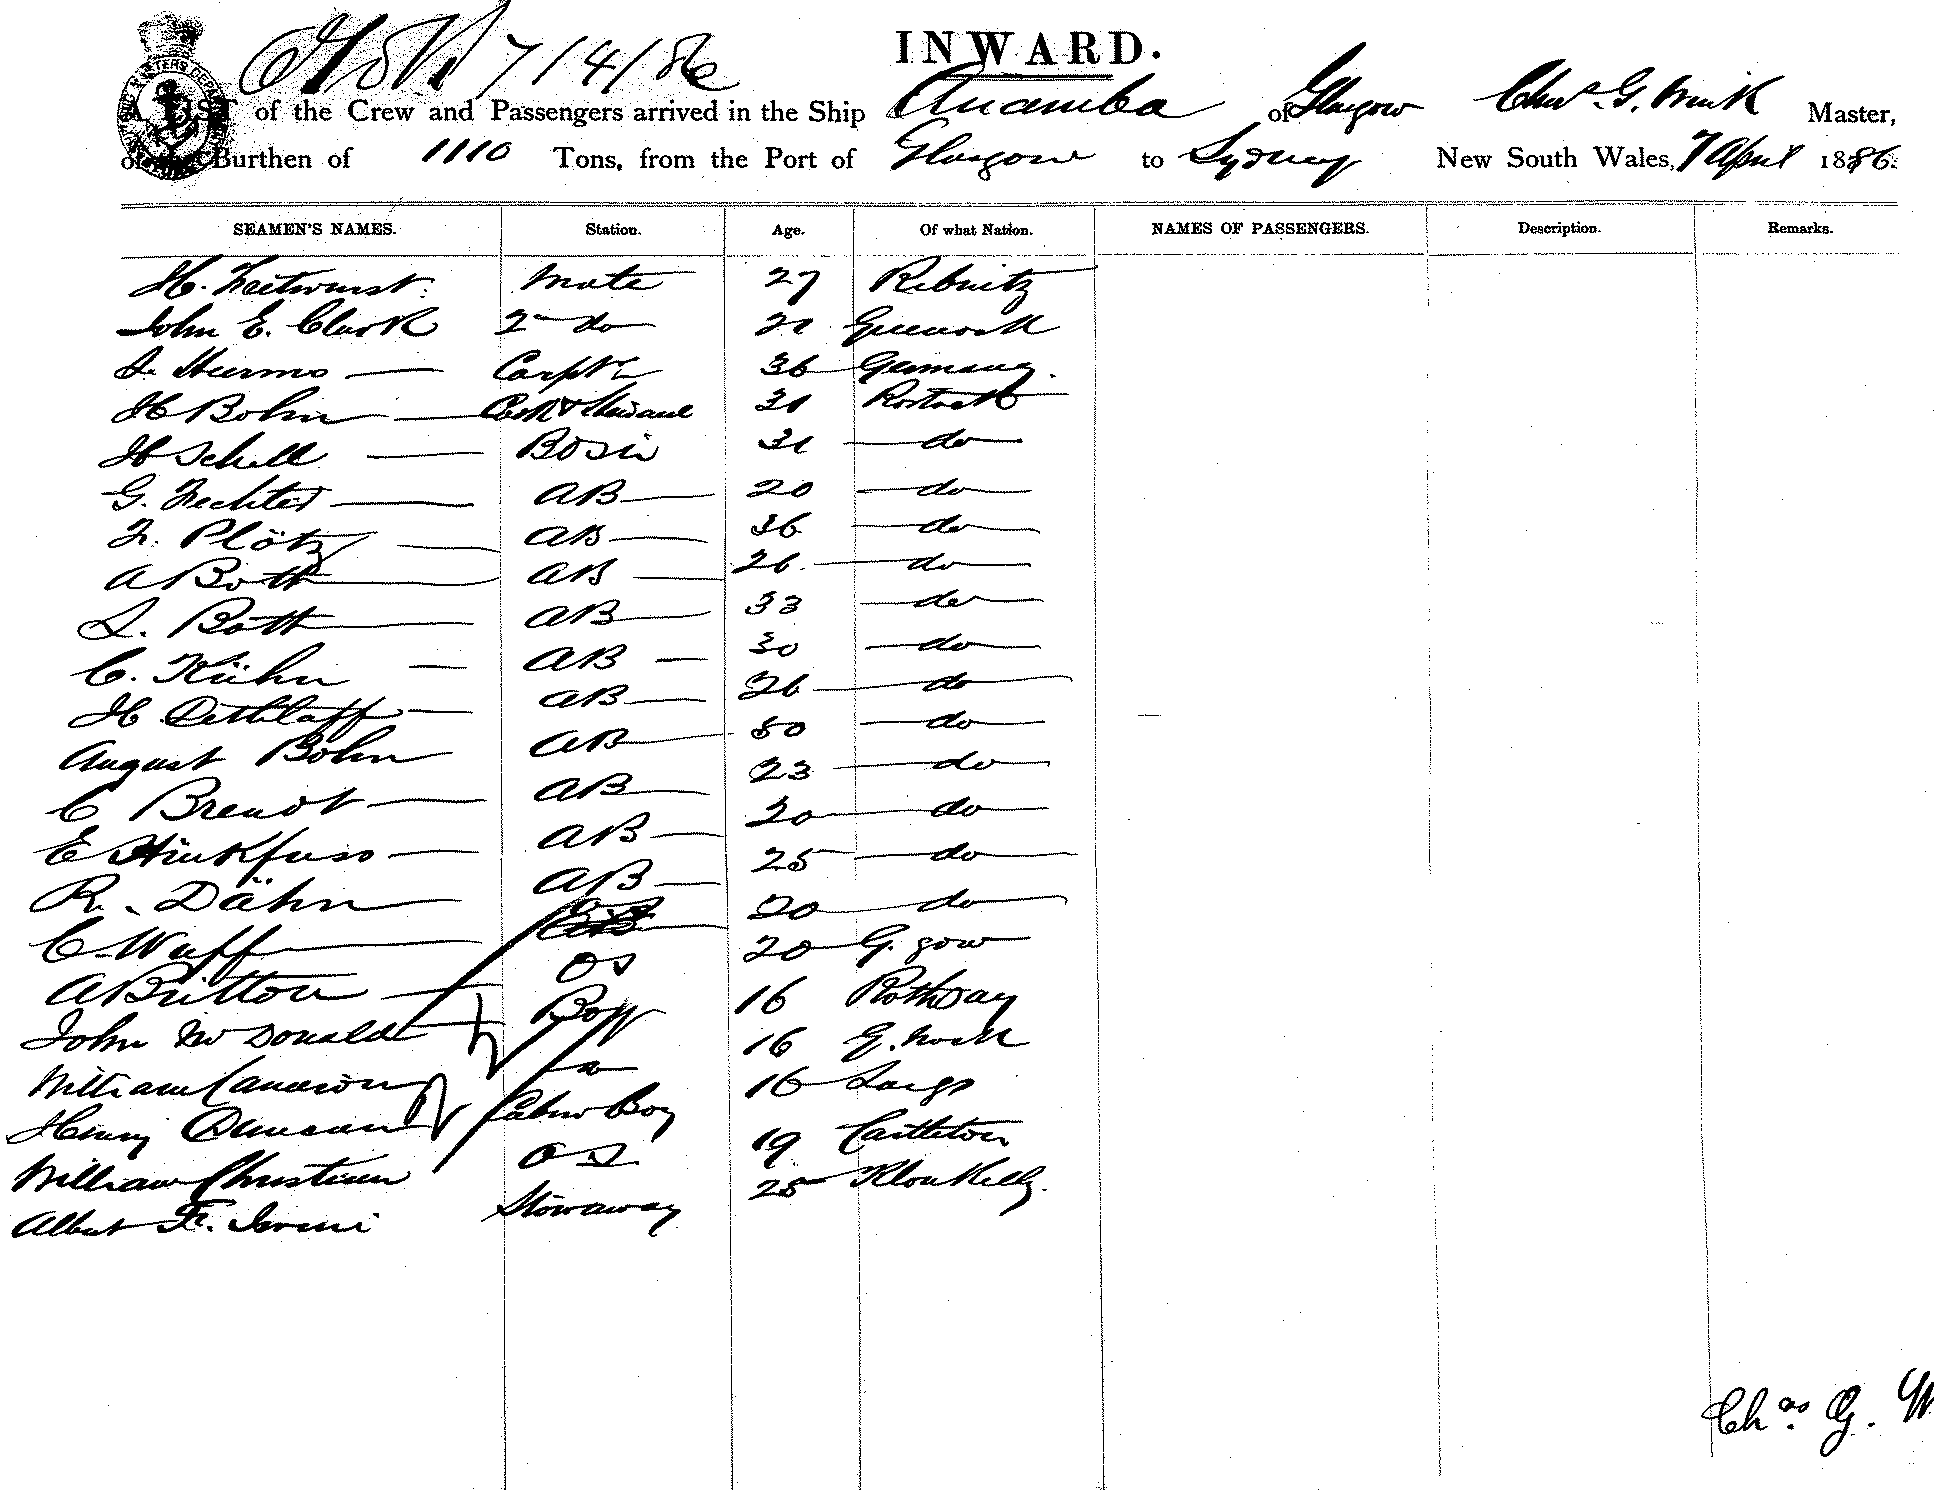 7/4/86
INWARD.
A LIST of the Crew and Passengers arrived in the Ship Anamba of Glasgow Chas. G. Master,
of the Burthen of 1110 Tons, from the Port of Glasgow to Sydney New South Wales, 7 April 1886.
SEAMEN'S NAMES. Station. Age. Of what Nation. NAMES OF PASSENGERS. Description. Remarks.
H. Mate 27 Ribnitz
John E. Clark 2nd do 21 Greenock
Carptr 36 Germany.
H Bohn Cook & Steward 31 Rostock
H Schell Bosn 31 do
G. Fechter AB 20 do
F. Plötz AB 36 do
A Bott AB 26 do
L. Bott AB 33 do
C. Kühn AB 30 do
H Dethlaff AB 26 do
August Bohn AB 50 do
C Brendt AB 23 do
E Hinkfuss AB 20 do
R. Dähn AB 25 do
C. Wuff 20 do
A Britton OS 20 G. gow
John McDonald Boy 16 Rothsay
William Cameron do 16 G. nock
Henry Duncan Cabin Boy 16 Largs
William Christian OS 19 Castleton
Albert F. Stowaway 25
Chas. G. W